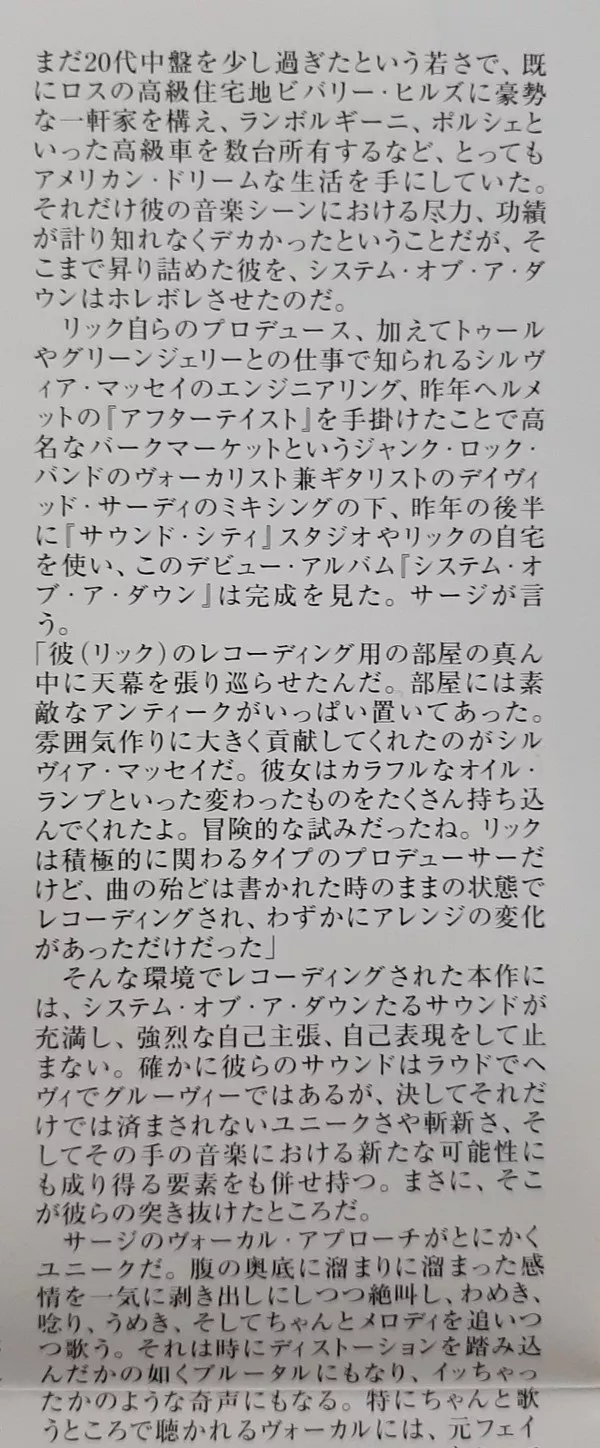 まだ20代中盤を少し過ぎたという若さで、既
にロスの高級住宅地ビバリー・ヒルズに豪勢
な一軒家を構え、ランボルギーニ、ポルシェと
いった高級車を数台所有するなど、とっても
アメリカン・ドリームな生活を手にしていた。
それだけ彼の音楽シーンにおける尽力、功績
が計り知れなくデカかったということだが、そ
こまで昇り詰めた彼を、システム・オブ・ア・ダ
ウンはホレボレさせたのだ。
　リック自らのプロデュース、加えてトゥール
やグリーンジェリーとの仕事で知られるシルヴ
ィア・マッセイのエンジニアリング、昨年ヘルメ
ットの『アフターテイスト』を手掛けたことで高
名なバークマーケットというジャンク・ロック・
バンドのヴォーカリスト兼ギタリストのデイヴィ
ッド・サーディのミキシングの下、昨年の後半
に『サウンド・シティ』スタジオやリックの自宅
を使い、このデビュー・アルバム『システム・オ
ブ・ア・ダウン』は完成を見た。サージが言
う。
「彼（リック）のレコーディング用の部屋の真ん
中に天幕を張り巡らせたんだ。部屋には素
敵なアンティークがいっぱい置いてあった。
雰囲気作りに大きく貢献してくれたのがシル
ヴィア・マッセイだ。彼女はカラフルなオイル・
ランプといった変わったものをたくさん持ち込
んでくれたよ。冒険的な試みだったね。リック
は積極的に関わるタイプのプロデューサーだ
けど、曲の殆どは書かれた時のままの状態で
レコーディングされ、わずかにアレンジの変化
があっただけだった」
　そんな環境でレコーディングされた本作に
は、システム・オブ・ア・ダウンたるサウンドが
充満し、強烈な自己主張、自己表現をして止
まない。確かに彼らのサウンドはラウドでヘ
ヴィでグルーヴィーではあるが、決してそれだ
けでは済まされないユニークさや斬新さ、そ
してその手の音楽における新たな可能性に
も成り得る要素をも併せ持つ。まさに、そこ
が彼らの突き抜けたところだ。
　サージのヴォーカル・アプローチがとにかく
ユニークだ。腹の奥底に溜まりに溜まった感
情を一気に剥き出しにしつつ絶叫し、わめき、
唸り、うめき、そしてちゃんとメロディを追いつ
つ歌う。それは時にディストーションを踏み込
んだかの如くブルータルにもなり、イッちゃっ
たかのような奇声にもなる。特にちゃんと歌
うところで聴かれるヴォーカルには、元フェイ